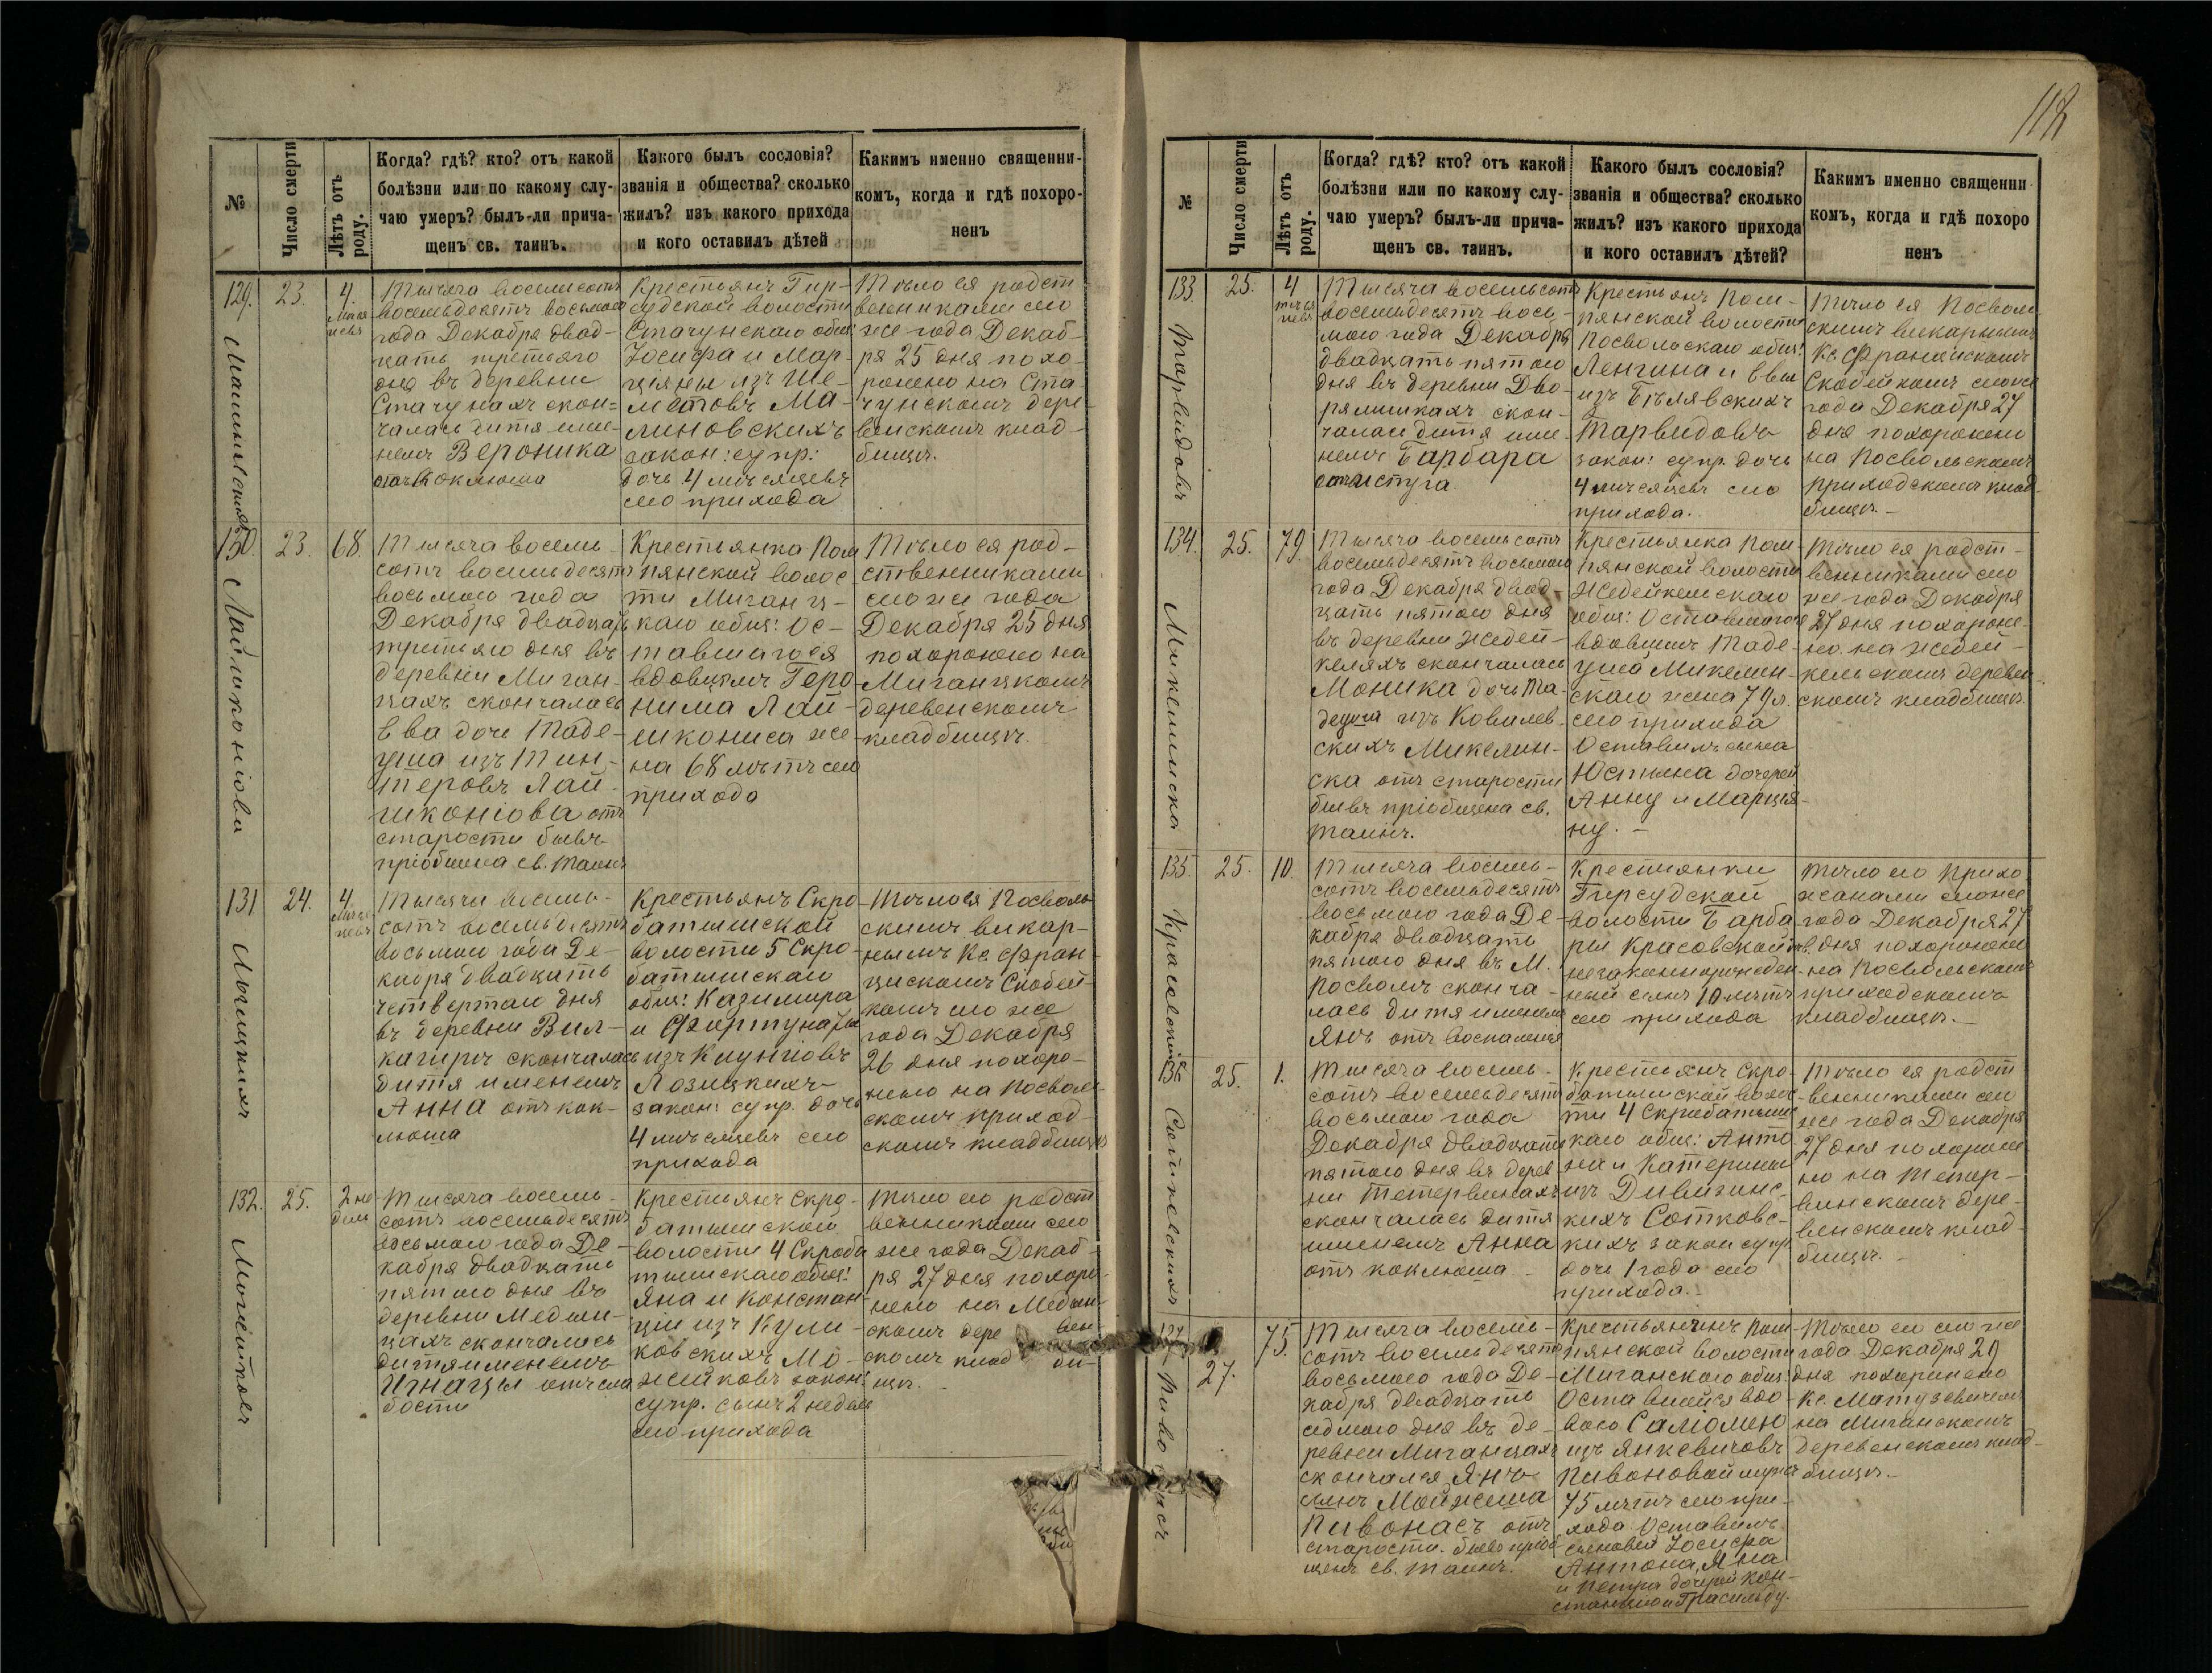 №
Число смерти
Лѣтъ отъ роду.
Когда? гдѣ? кто? отъ какой
болѣзни или по какому слу-
чаю умеръ? былъ-ли прича-
щенъ св. таинъ.
Какого былъ сословія?
званія и общества? сколько
жилъ? изъ какого прихода
и кого оставилъ дѣтей
Какимъ именно священни-
комъ, когда и гдѣ похоро-
ненъ
129.
23.
4.
Тысяча восемьсотъ
восемьдесятъ восьмого
года Декабря двад-
цать третьяго
дня въ деревни
Стачунахъ скон-
чалась дитя име-
немъ Вероника
отъ коклюша
Крестьянъ Гир-
судской волости
Стачунскаго общ:
Іосифа и Мар-
ціяны изъ Ше-
метовъ Ма-
линовскихъ
закон: супр:
дочь 4 мѣсяцевъ
сего прихода
Тѣло ея родст
венниками сего
же года Декаб-
ря 25 дня похо-
ронено на Ста-
чунскомъ дере-
венскомъ клад-
бищѣ.
130.
23.
68.
Тысяча восемь-
сотъ восемьдесятъ
восьмого года
Декабря двадцать
третьяго дня въ
деревни Миган-
цахъ скончалась
Ева дочь Таде-
уша изъ Тин-
теровъ Лай-
шконіова отъ
старости бывъ
пріобщена св. Таинъ
Крестьянка Пом
пянской волос-
ти Миганц-
каго общ: Ос-
тавшагося
вдовцемъ Геро-
нима Лай-
шкониса же-
на 68 лѣтъ сего
прихода
Тѣло ея род-
ственниками
сего же года
Декабря 25 дня
похоронено на
Миганцкомъ
деревенскомъ
кладбищѣ.
131
24.
4.
Тысяча восемь-
сотъ восемьдесятъ
восьмого года Де-
кабря двадцать
четвертаго дня
въ деревни Вил-
кагирѣ скончалась
дитя именемъ
Анна отъ кок-
люша
Крестьянъ Скро-
батишской
волости 5 Скро-
батишскаго
общ: Казимира
и Фортунаты
изъ
Лозицкихъ
закон: супр. дочь
4 мѣсяцевъ сего
прихода
Тѣло ея Посволь
скимъ викар-
нымъ Кс. Фран-
цискомъ Скобей-
комъ сего же
года Декабря
26 дня похоро-
нено на Посволь
скомъ приход-
скомъ кладбищѣ
132.
25.
2 не
дель
Тысяча восемь-
сотъ восемьдесятъ
восьмого года Де-
кабря двадцать
пятого дня въ
деревни Медын-
цахъ скончалась
дитя именемъ
Игнацы отъ сла
бости
Крестьянъ Скро-
батишской
волости 4 Скроба
тишскаго общ:
Яна и Констан-
ціи изъ Кули-
ковскихъ Мо-
жейковъ закон:
супр. сынъ 2 недель
сего прихода
Тѣло его родст
венниками сего
же года Декаб-
ря 27 дня похоро-
нено на Медын-
скомъ дере вен
скомъ клад би-
щѣ.
118
№
Число смерти
Лѣтъ отъ роду.
Когда? гдѣ? кто? отъ какой
болѣзни или по какому слу-
чаю умеръ? былъ-ли прича-
щенъ св. таинъ.
Какого былъ сословія?
званія и общества? сколько
жилъ? изъ какого прихода
и кого оставилъ дѣтей?
Какимъ именно священни
комъ, когда и гдѣ похоро
ненъ
133.
25.
4
Тарвидовъ
Тысяча восемьсотъ
восемьдесятъ вось-
мого года Декабря
двадцать пятого
дня въ деревни Дво-
рялишкахъ скон-
чалась дитя име-
немъ Барбара
Крестьянъ Пом-
пянской волости
Посвольскаго общ:
Ленгина и Евы
изъ Бѣлявскихъ
Тарвидовъ
закон: супр. дочь
4 мѣсяцевъ сего
прихода.
Тѣло ея Посволь
скимъ викарнымъ
Кс. Францискомъ
Скобейкомъ сего же
года Декабря 27
дня похоронено
на Посвольскомъ
приходскомъ клад-
бищѣ.-
134.
25.
79.
Тысяча восемьсотъ
восемьдесятъ восьмого
года Декабря двад-
цать пятого дня
въ деревни Жедей-
келяхъ скончалась
Моника дочь Та-
деуша изъ Ковалев-
скихъ Микелин-
ска отъ старости
бывъ пріобщена св.
Таинъ.
Крестьянка Пом-
пянской волости
Жедейкельскаго
общ: Оставшагося
вдовцемъ Таде-
уша Микелин-
скаго жена 79 л.
сего прихода
Оставилъ сына
Юстына дочерей
Анну и Марція-
ну.-
Тѣло ея родст-
венниками сего
же года Декабря
27 дня похороне-
но на Жедей-
кельскомъ деревен
скомъ кладбищѣ.
135.
25.
10.
Тысяча восемь-
сотъ восемьдесятъ
восьмого года Де-
кабря двадцать
пятого дня въ М.
Посволѣ сконча-
лась дитя именемъ
Янъ отъ воспаленія
Крестьянки
Гирсудской
волости Барба
ры Красовской
незаконнорожден-
ный сынъ 10 лѣтъ
сего прихода
Тѣло его Прихо
жанами сего же
года Декабря 27
дня похоронено
на Посвольскомъ
приходскомъ
кладбищѣ.-
136
25.
1.
Тысяча восемь-
сотъ восемьдесятъ
восьмого года
Декабря двадцать
пятого дня въ дерев
ни Тетервинахъ
скончалась дитя
именемъ Анна
отъ коклюша.-
Крестьянъ Скро-
батишской волос-
ти 4 Скробатишс
каго общ: Анто-
на и Катерины
изъ Дивигинс-
кихъ Сотковс-
кихъ закон супр
дочь 1 года сего
прихода.-
Тѣло ея родст
венниками сего
же года Декабря
27 дня похороне
но на Тетер-
винскомъ дере-
венскомъ клад-
бищѣ.-
137
27.
75.
Тысяча восемь-
сотъ восемьдесятъ
восьмого года Де-
кабря двадцать
седмого дня въ де-
ревни Миганцахъ
скончался Янъ
сынъ Мойжеша
Пивонасъ отъ
старости. бывъ пріоб
щенъ св. Таинъ.
Крестьянинъ Пом-
пянской волости
Миганскаго общ:
Оставшейся вдо-
вою Саломеи
изъ Янкевичовъ
Пивоновой мужъ
75 лѣтъ сего при-
хода. Оставилъ
сыновей Іосифа
Антона, Яна
и Петра дочерей Кон-
станцію и Грасильду.
Тѣло его сего же
года Декабря 29
дня похоронено
Кс. Матузевичемъ
на Миганскомъ
деревенскомъ клад-
бищѣ.-